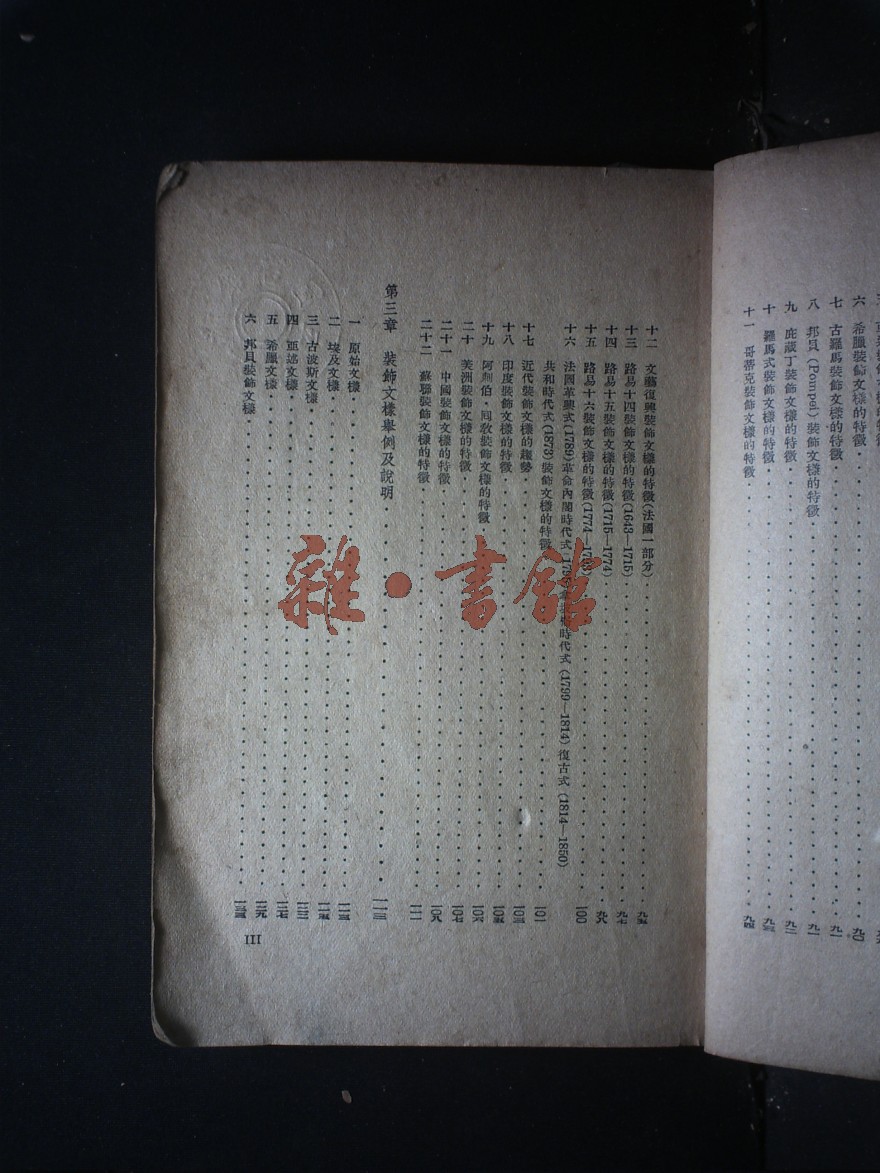 六 希臘裝飾文樣的特徵 九〇
七 古羅馬裝飾文樣的特徵 九一
八 邦貝 (Pompei) 裝飾文樣的特徵 九一
九 庇蔵丁裝飾文樣的特徵 九二
十 羅馬式裝飾文樣的特徵 九三
十一 哥蒂克裝飾文樣的特徵 九四
十二 文藝復興裝飾文樣的特徵(法國一部分) 九五
十三 路易十四裝飾文樣的特徵(1643—1715) 九七
十四 路易十五裝飾文樣的特徵(1715—1774) 九八
十五 路易十六裝飾文樣的特徵(1774— 100
十六 法國革興式(1789)革命內閣時代式 時代式(1799—1814)復古式(1814—1850)
共和時代式(1873)裝飾文樣的特徵 101
十七 近代裝飾文樣的趨勢 10三
十八 印度裝飾文樣的特徵 10五
十九 阿剌伯·回教裝飾文樣的特徵 10六
二十 美洲裝飾文樣的特徵 10七
二十一 中國裝飾文樣的特徵 10八
二十二 蘇聯裝飾文樣的特徵
第三章 裝飾文樣舉例及說明 一一三
一 原始文樣 一一三
二 埃及文樣 一一五
三 古波斯文樣
四 亞述文樣 一二七
五 希臘文樣 一二九
六 邦貝裝飾文樣 一三三
III
雜·書館